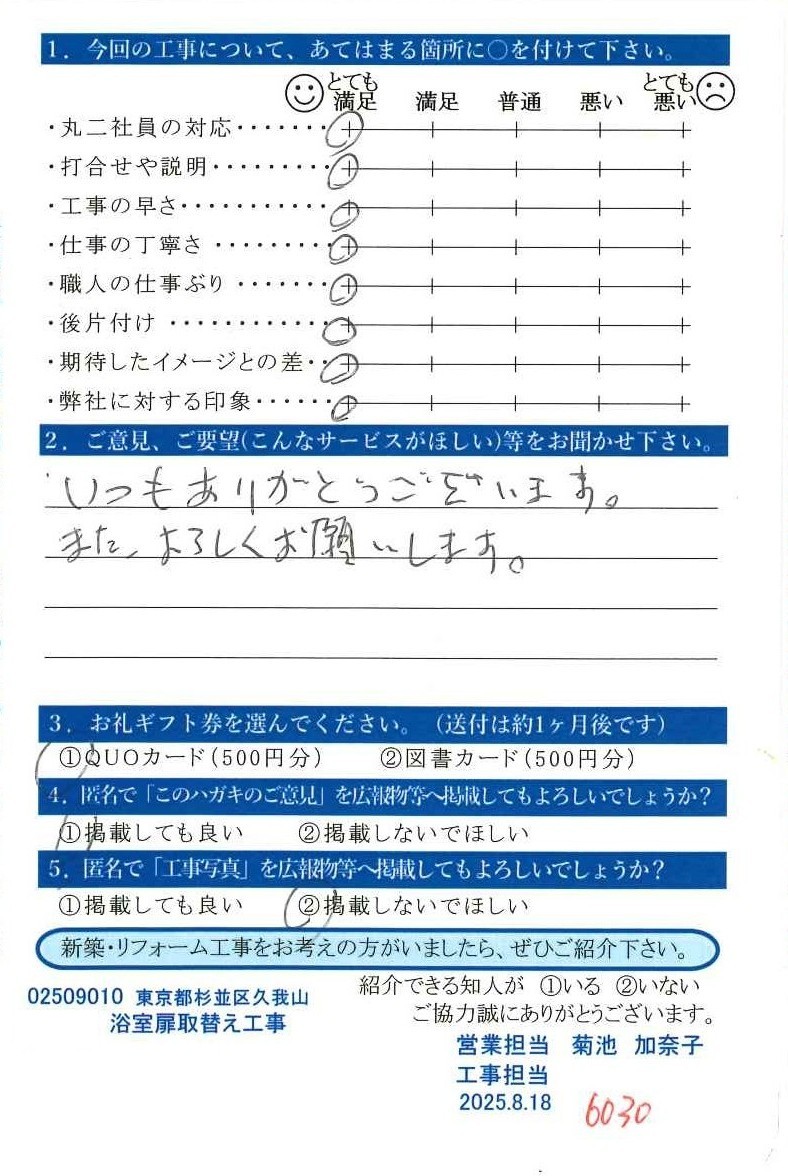 1．今回の工事について、あてはまる箇所に○を付けて下さい。
とても満足 満足 普通 悪い とても悪い
・丸二社員の対応・・・・・・
・打合せや説明・・・・・・・・
・工事の早さ・・・・・・・・・・・
・仕事の丁寧さ ・・・・・・・・
・職人の仕事ぶり ・・・・・・
・後片付け ・・・・・・・・・・・
・期待したイメージとの差・・
・弊社に対する印象・・・・・
2．ご意見、ご要望(こんなサービスがほしい)等をお聞かせ下さい。
いつもありがとうございます。
また、よろしくお願いします。
3．お礼ギフト券を選んでください。（送付は約1ヶ月後です）
①QUOカード(500円分) ②図書カード(500円分)
4．匿名で「このハガキのご意見」を広報物等へ掲載してもよろしいでしょうか？
①掲載しても良い ②掲載しないでほしい
5．匿名で「工事写真」を広報物等へ掲載してもよろしいでしょうか？
①掲載しても良い ②掲載しないでほしい
新築・リフォーム工事をお考えの方がいましたら、ぜひご紹介下さい。
紹介できる知人が ①いる ②いない
ご協力誠にありがとうございます。
02509010 東京都杉並区久我山
浴室扉取替え工事
営業担当 菊池 加奈子
工事担当
2025.8.18
6030